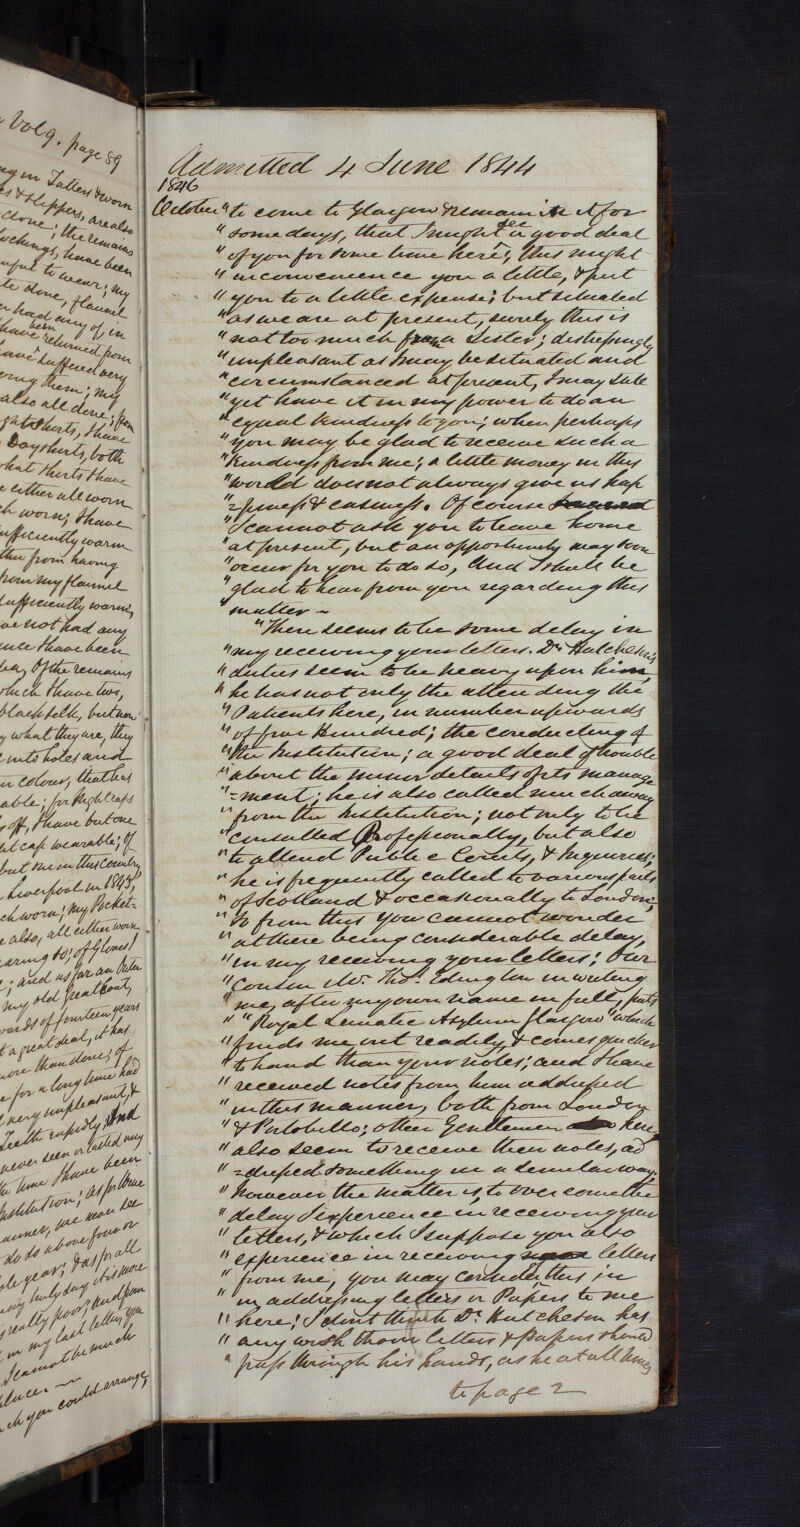 Vol 9. page 89
ng in Tatters & worn
es & Slippers, are also
done; the remains
tockings, have been
to wear; my
done, flannel
had any of in
have been returned from
suffered very
them; my
also all done; from
Shirts, I have
Dayshirts, both
what Shirts I have
either all worn
worn; I have
sufficiently warm
from having
from my flannel
sufficiently warm,
not had any
I have been
Of the remains
which I have two,
black silk, but
what they are, they
into holes and
colour, that has
able; for Nightcaps
off, I have but one
cap wearable; of
but me in this Country
Liverpool in 1843,
worn; my Pocket=
also, all either worn
to; of Gloves I
and as for an Outer
my old Greatcoat,
wards of fourteen years
a great deal, it has
more than done; of
for a long time had
very unpleasant, &
Teeth rapidly, And
never seen or tasted any
time I have been
Institution; as for Wine
we never see
do so above four or
year; & as for all
holyday it is more
really poor; and from
in my last letter, you
I cannot be much
place. ~
you could arrange,
Admitted 4 June 1844
1846
October "to come to Glasgow & remain in it for
"some days, that I might see a good deal
"of you for some time here; this might
"inconvenience you a little, & put
"you to a little expense; but situated
"as we are at present, surely this is
"not too much from a Sister; distressingly
"unpleasant as I may be situated and
"circumstanced at present, I may still
"yet have it in my power to do an
"equal kindness to you; when perhaps
"you may be glad to receive such a
"kindness from me; a little money in this
"world does not always give us hap
"=piness & easiness. Of course
"I cannot ask you to leave home
"at present, but an opportunity may soon
"occur for you to do so, And I shall be
"glad to hear from you regarding this
"matter ~
"There seems to be some delay in
"my receiving your letters. Dr. Hutcheson's
"duties seem to be heavy upon him,
"he has not only the attending the
"Patients here, in number upwards
"of four Hundred; the conducting of
"the Institution; a good deal of trouble
"about the minor details of its manage
"=ment; he is also called much away
"from the Institution; not only to be
"consulted Professionally, but also
"to attend Public Courts, & Inquiries;
"he is frequently called to various parts
"of Scotland & occasionally to London;
"So from this you cannot wonder
"at there being considerable delay,
"in my receiving your letters; Our
"Cousin Mr. Thos. Edington in writing
"me, after my own name in full, puts
" "Royal Lunatic Asylum Glasgow" which
"finds me out readily, & comes quicker
"to hand than your notes; and I have
"received notes from him addressed
"in this manner, both from London
"& Portobello; other Gentlemen here
"also seem to receive their notes, ad
"=dressed something in a similar way;
"however the matter is, to overcome the
"delay I experience in receiving your
"letters, & which I suppose you also
"experience in receiving letters
"from me, you may consider this in
"in addressing letters or Papers to me
"here; I dont think Dr. Hutcheson has
"any wish that letters & papers should
"pass through his hands, as he at all times
to page 2